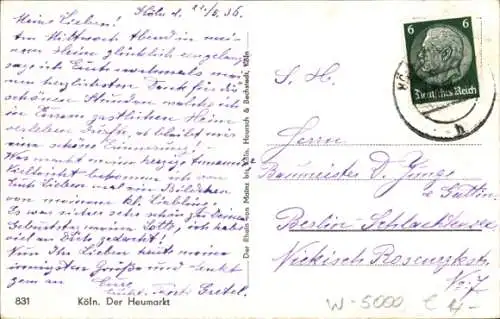 Köln d. 22/5.36.
Meine Lieben!
Am Mittwoch Abend in mei-
nem Heim glücklich angelangt
sage ich Euch nochmals mei-
nen herzlichsten Dank für die
schönen Stunden welche ich
in Eurem gastlichen Heim
verleben durfte, es bleibt mir
eine schöne Erinnerung!
Was macht mein herzig
Vielleicht bekomme ich von
Euch Lieben mal ein Bildchen
von meinem kl. Liebling.
Es war sicher sehr schön zu
Geburtstag meine Lotte, ich habe
viel an Euch gedacht!
Nun Ihr Lieben heute meine
innigsten Grüße und denkt
gern an Eure
Gretel.
831 Köln. Der Heumarkt
Der Rhein von Mainz bis Köln. Hoursch & Bechstedt, Köln
6 6
Deutsches Reich
S. H.
Herrn
Baumeister D. Junge
u. Gattin
Berlin-Schlachtensee
Rosenzykstr.
No. 7
W-5000 € 4,-